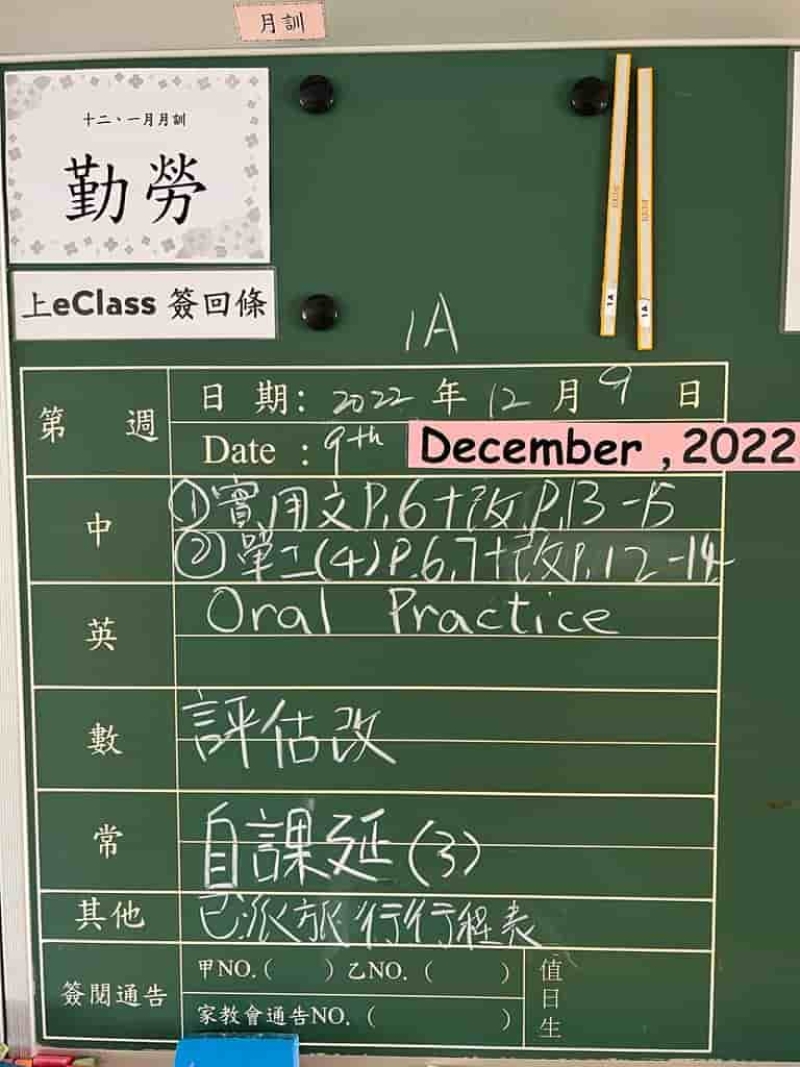 月訓
十二、一月月訓
勤勞
上eClass 簽回條
1A
1A
1A
第 週
日 期: 2022 年 12 月 9 日
Date : 9th December , 2022
中
①實用文P.6+改P.13-15
②單二(4)P.6,7+改P.12-14
英
Oral Practice
數
評估改
常
自課延(3)
其他
已派旅行行程表
簽閱通告
甲NO.( ) 乙NO. ( )
家教會通告NO. ( )
值日生